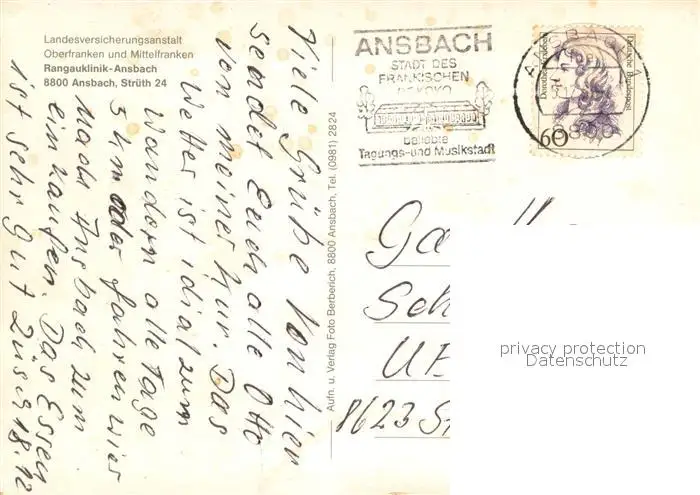 Landesversicherungsanstalt
Oberfranken und Mittelfranken
Rangauklinik-Ansbach
8800 Ansbach, Strüth 24
Viele Grüße von hier
sendet Euch alle Otto
von meiner Kur. Das
Wetter ist idial zum
Wandern alle Tage
5 km oder fahren wir
nach Ansbach zum
einkaufen. Das Essen
ist sehr gut
18.12
Aufn. u. Verlag Foto Berberich, 8800 Ansbach, Tel. (0981) 2824
ANSBACH
STADT DES
FRÄNKISCHEN
ROKOKO
beliebte
Tagungs-und Musikstadt
ANSBACH
8800
Deutsche Bundespost
60
Ga
Sch
8623 St
privacy protection
Datenschutz